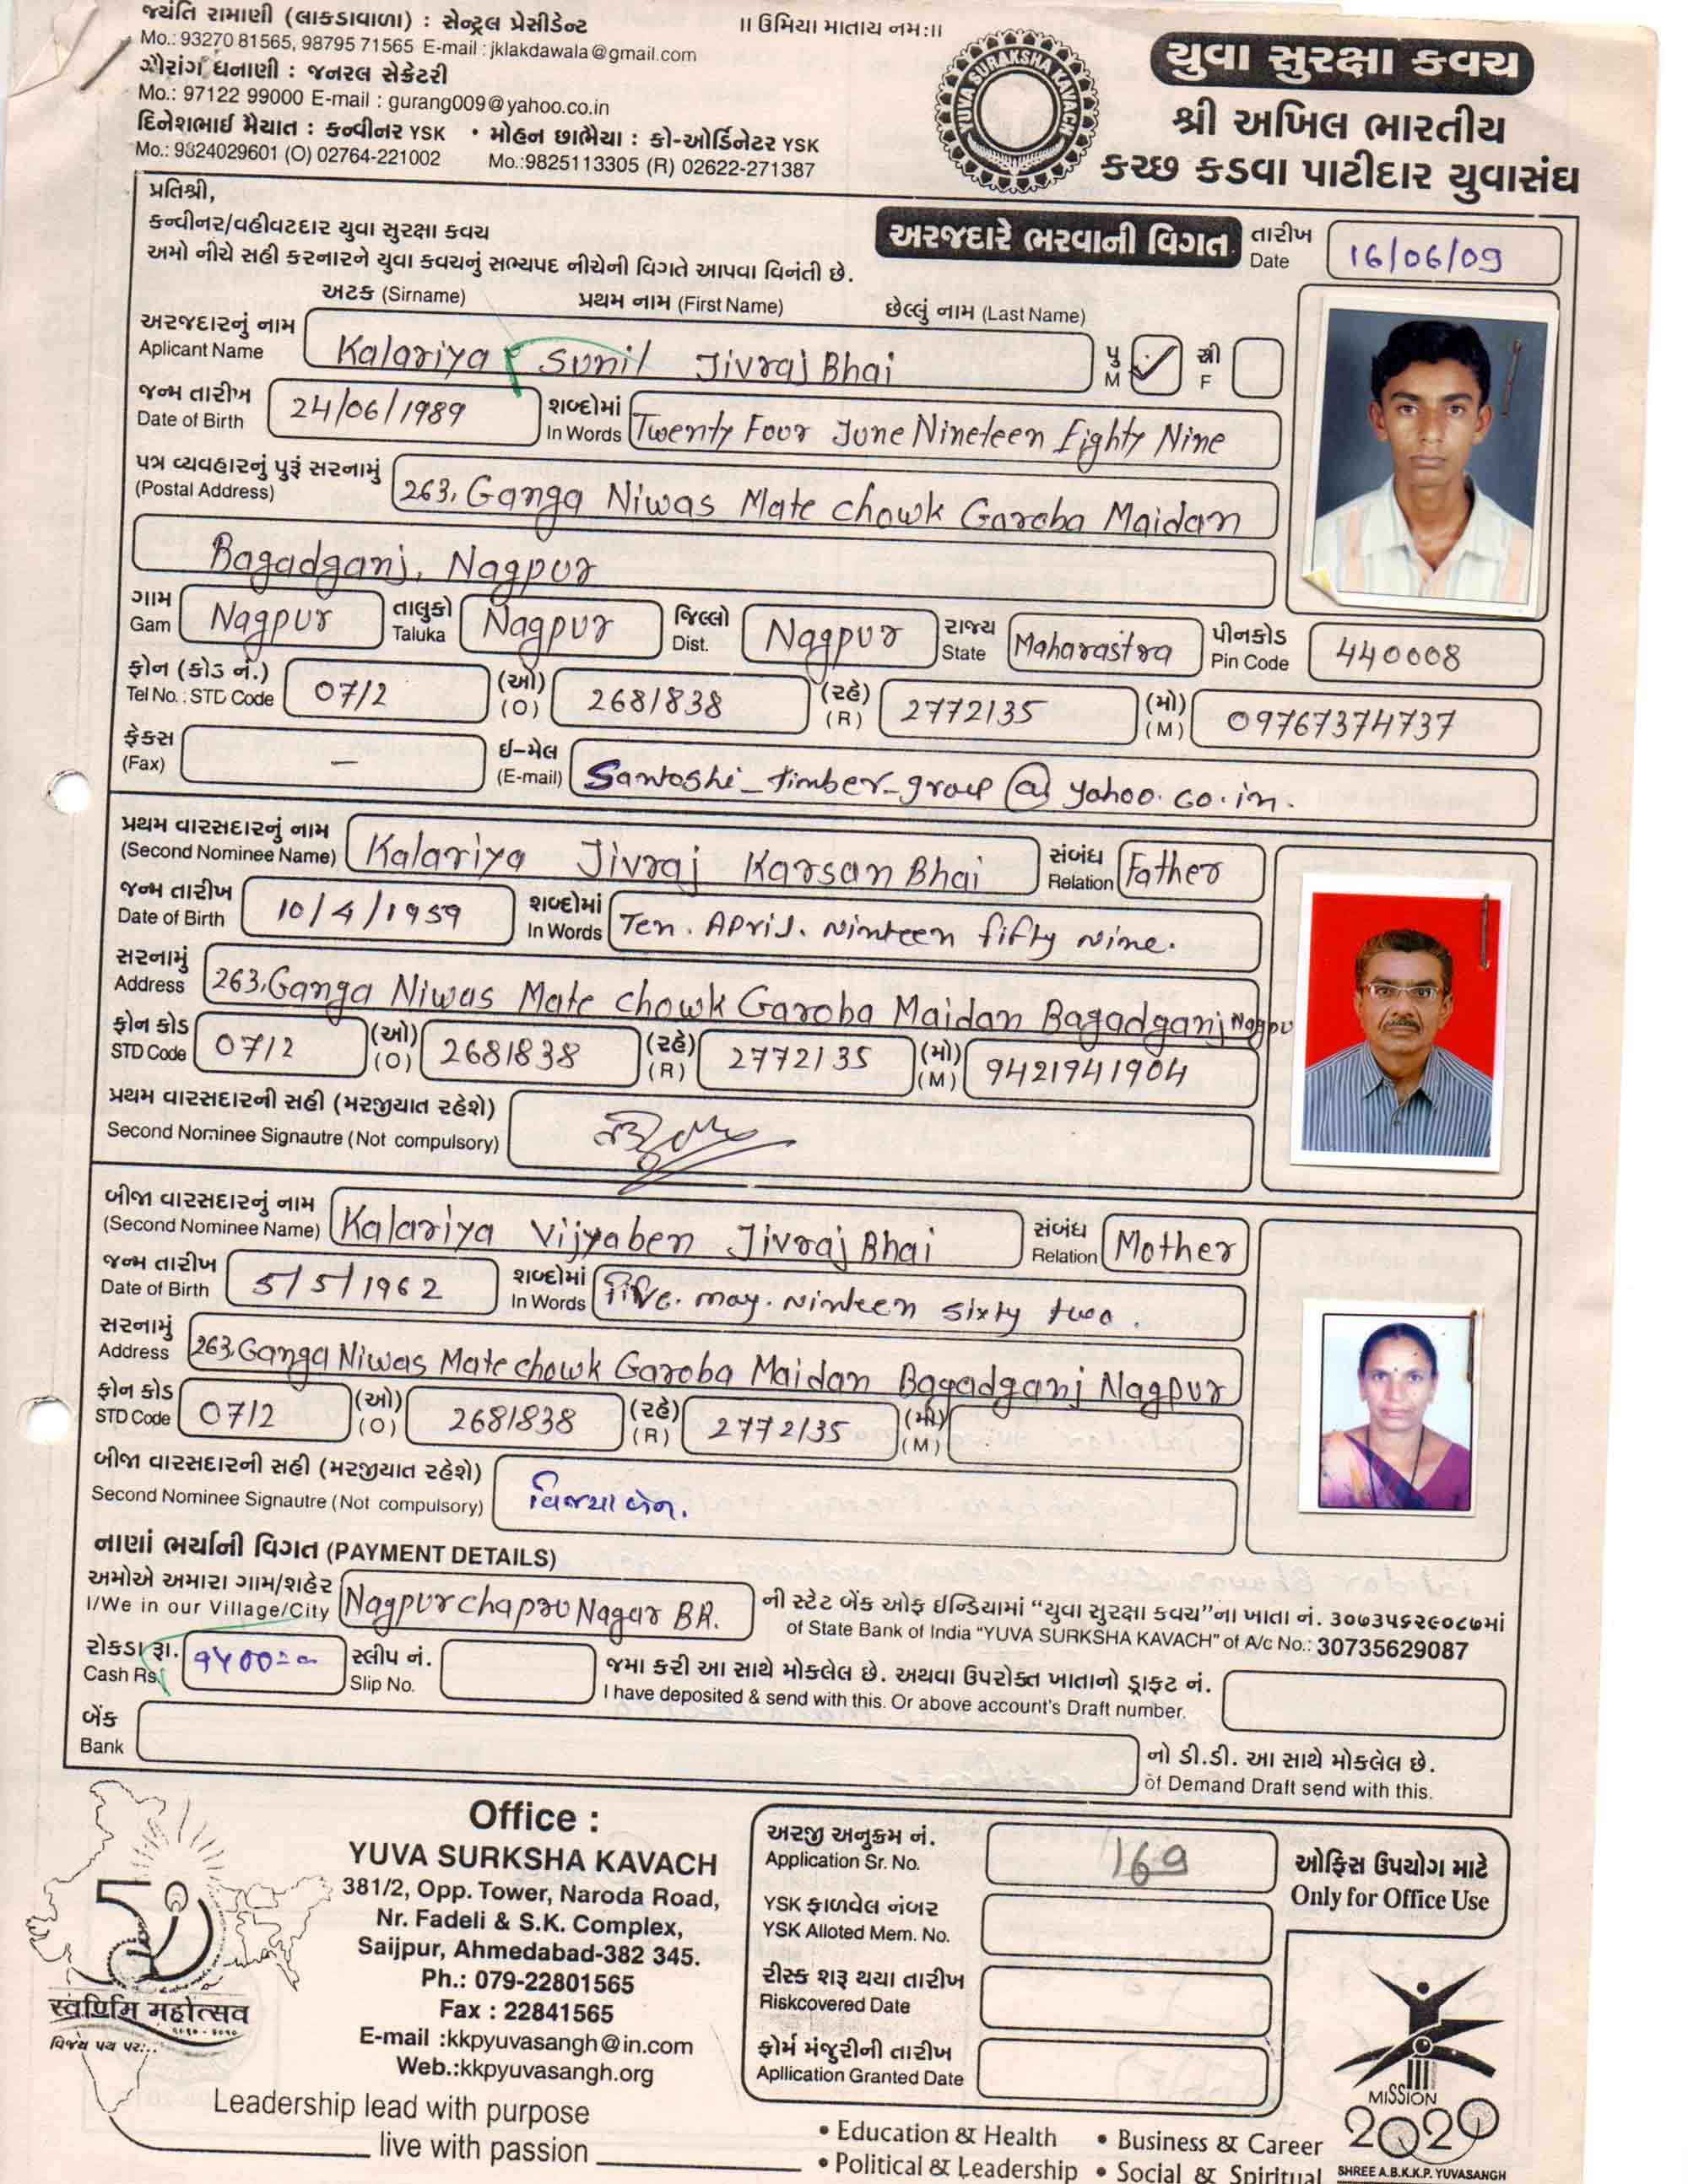 જયંતિ રામાણી (લાકડાવાળા) : સેન્ટ્રલ પ્રેસીડેન્ટ
॥ ઉમિયા માતાય નમઃ॥
Mo.: 93270 81565, 98795 71565 E-mail : jklakdawala@gmail.com
ગૌરાંગ ધનાણી : જનરલ સેક્રેટરી
Mo.: 97122 99000 E-mail : gurang009@yahoo.co.in
દિનેશભાઈ મૈયાત : કન્વીનર YSK • મોહન છાભૈયા : કો-ઓર્ડિનેટર YSK
Mo.: 9824029601 (O) 02764-221002 Mo.:9825113305 (R) 02622-271387
YUVA SURAKSHA KAVACH
યુવા સુરક્ષા કવચ
શ્રી અખિલ ભારતીય
કચ્છ કડવા પાટીદાર યુવાસંઘ
પ્રતિશ્રી,
કન્વીનર/વહીવટદાર યુવા સુરક્ષા કવચ
અમો નીચે સહી કરનારને યુવા કવચનું સભ્યપદ નીચેની વિગતે આપવા વિનંતી છે.
અરજદારે ભરવાની વિગત
તારીખ
Date 16/06/09
અટક (Sirname) પ્રથમ નામ (First Name) છેલ્લું નામ (Last Name)
અરજદારનું નામ
Aplicant Name Kalariya Sunil JivrajBhai પુ M ✓ સ્ત્રી F
જન્મ તારીખ
Date of Birth 24/06/1989 શબ્દોમાં In Words Twenty Four June Nineteen Eighty Nine
પત્ર વ્યવહારનું પુરૂં સરનામું
(Postal Address) 263, Ganga Niwas Mate chowk Garoba Maidan
Bagadganj, Nagpur
ગામ Gam Nagpur તાલુકો Taluka Nagpur જિલ્લો Dist. Nagpur રાજ્ય State Maharastra પીનકોડ Pin Code 440008
ફોન (કોડ નં.)
Tel No.: STD Code 0712 (ઓ) (O) 2681838 (રહે) (R) 2772135 (મો) (M) 09767374737
ફેક્સ
(Fax) – ઈ-મેલ (E-mail) Santoshi_timber_group@yahoo.co.in.
પ્રથમ વારસદારનું નામ
(Second Nominee Name) Kalariya Jivraj KarsanBhai સંબંધ Relation Father
જન્મ તારીખ
Date of Birth 10/4/1959 શબ્દોમાં In Words Ten. April. Ninteen fifty Nine.
સરનામું
Address 263,Ganga Niwas Mate chowk Garoba Maidan Bagadganj Nagpu
ફોન કોડ
STD Code 0712 (ઓ) (O) 2681838 (રહે) (R) 2772135 (મો) (M) 9421941904
પ્રથમ વારસદારની સહી (મરજીયાત રહેશે)
Second Nominee Signautre (Not compulsory)
બીજા વારસદારનું નામ
(Second Nominee Name) Kalariya Vijyaben JivrajBhai સંબંધ Relation Mother
જન્મ તારીખ
Date of Birth 5/5/1962 શબ્દોમાં In Words five. may. Ninteen sixty two.
સરનામું
Address 263,Ganga Niwas Mate chowk Garoba Maidan Bagadganj Nagpur
ફોન કોડ
STD Code 0712 (ઓ) (O) 2681838 (રહે) (R) 2772135 (મો) (M)
બીજા વારસદારની સહી (મરજીયાત રહેશે)
Second Nominee Signautre (Not compulsory) વિજયા બેન.
નાણાં ભર્યાની વિગત (PAYMENT DETAILS)
અમોએ અમારા ગામ/શહેર ની સ્ટેટ બેંક ઓફ ઈન્ડિયામાં “યુવા સુરક્ષા કવચ”ના ખાતા નં. ૩૦૭૩૫૬૨૯૦૮૭માં
I/We in our Village/City Nagpur chapru Nagar BR. of State Bank of India “YUVA SURKSHA KAVACH” of A/c No.: 30735629087
રોકડા રૂા. સ્લીપ નં. જમા કરી આ સાથે મોકલેલ છે. અથવા ઉપરોક્ત ખાતાનો ડ્રાફ્ટ નં.
Cash Rs. Slip No. I have deposited & send with this. Or above account's Draft number.
બેંક
Bank
નો ડી.ડી. આ સાથે મોકલેલ છે.
of Demand Draft send with this.
Office :
YUVA SURKSHA KAVACH
381/2, Opp. Tower, Naroda Road,
Nr. Fadeli & S.K. Complex,
Saijpur, Ahmedabad-382 345.
Ph.: 079-22801565
Fax : 22841565
E-mail :kkpyuvasangh@in.com
Web.:kkpyuvasangh.org
અરજી અનુક્રમ નં.
Application Sr. No. 169
YSK ફાળવેલ નંબર
YSK Alloted Mem. No.
રીસ્ક શરૂ થયા તારીખ
Riskcovered Date
ફોર્મ મંજુરીની તારીખ
Apllication Granted Date
ઓફિસ ઉપયોગ માટે
Only for Office Use
50
स्वर्णिम महोत्सव
Leadership lead with purpose
live with passion
• Education & Health • Business & Career
• Political & Leadership • Social & Spiritual
MISSION
2020
SHREE A.B.K.K.P. YUVASANGH